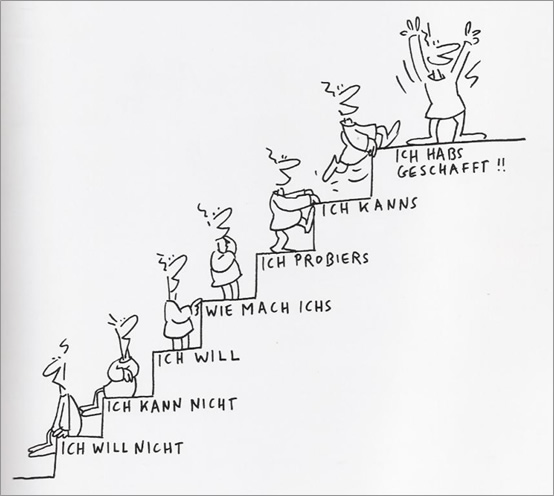 ICH HABS
GESCHAFFT !!
ICH KANNS
ICH PROBIERS
WIE MACH ICHS
ICH WILL
ICH KANN NICHT
ICH WILL NICHT